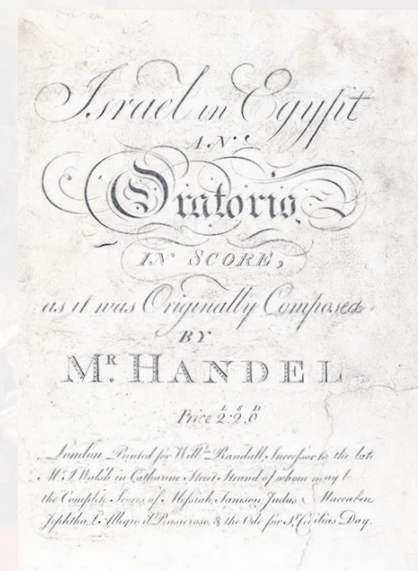 Israel in Egypt
AN
Oratorio
IN SCORE,
as it was Originally Composed
BY
MR. HANDEL
L S D
Price 2:2.0
London Printed for Willm. Randall, Successor to the late
Mr. J. Walsh in Catharine Street Strand of whom may b
the Complete Scores of Messiah Samson Judas Maccabeu
Jephtha L'Allegro il Penseroso, & the Ode for St. Cecilias Day.